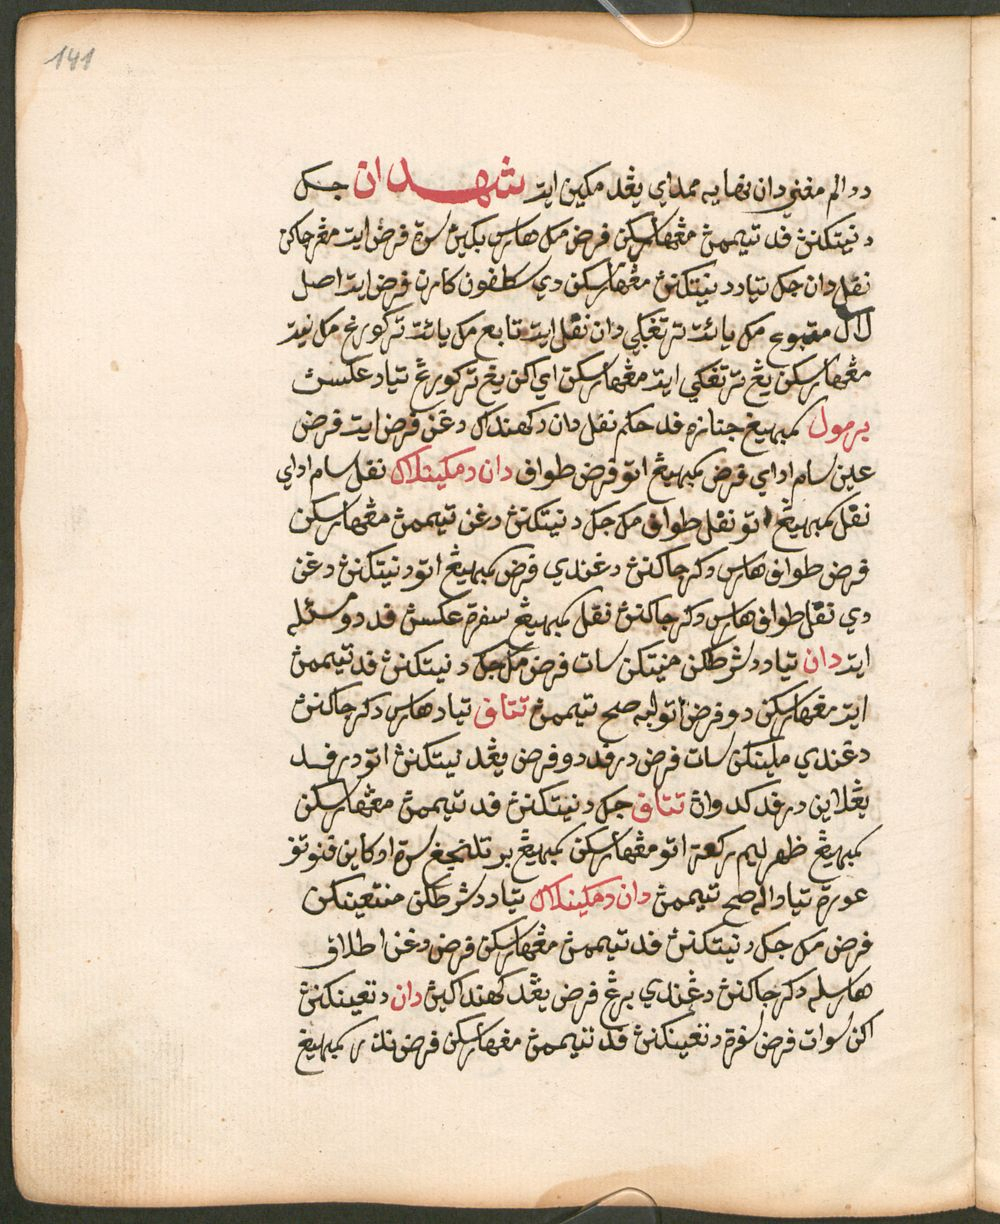 141
ددالم مغني دان نهايه ممداي يڠد مكين ايت شهدان جك
دنيتكنڽ فد تيممڽ مڠهارسكن فرض مك هارس بݢيڽ سوة فرض ايت مڠرجاكن
نفل دان جك تياد دنيتكنڽ مڠهارسكن دي سكلفون كارن فرض ايت اصل
لاݢ متبوع مك يائت ترتڠݢي دان نفل ايت تابع مك يائت تركورڠ مك نية
مڠهارسكن يڠ ترتڠݢي ايت مڠهارسكن اي اكن يڠ تركورڠ تياد عكسڽ
برمول سمبهيڠ جنازه فد حكم نفل دان دكهنداك دڠن فرض ايت فرض
عين سام اداي فرض سمبهيڠ اتو فرض طواف دان دمكينلاݢ نفل سام اداي
نفل سمبهيڠ اتو نفل طواف مك جك دنيتكنڽ دڠن تيممڽ مڠهارسكن
فرض طواف هارس دكرجاكنڽ دڠندي فرض سمبهيڠ اتو دنيتكنڽ دڠن
دي نفل طواف هارس دكرجاكنڽ نفل سمبهيڠ سفرة عكسڽ فد دو مسئله
ايت دان تياد دشرطكن منيتكن سات فرض مك جك دنيتكنڽ فد تيممڽ
ايت مڠهارسكن دو فرض اتو لبه صح تيممڽ تتاف تياد هارس دكرجاكنڽ
دڠندي ملينكن سات فرض درفد دو فرض يڠد نيتكنڽ اتو درفد
يڠلاين درفد كدواڽ تتاف جك دنيتكنڽ فد تيممڽ مڠهارسكن
سمبهيڠ ظهر ليم ركعة اتو مڠهارسكن سمبهيڠ برتلنجڠ سوة اد كاين فنوتف
عورة تياداله صح تيممڽ دان دمكينلاݢ تياد دشرطكن منتعينكن
فرض مك جك دنيتكنڽ فد تيممڽ مڠهارسكن فرض دڠن اطلاق
هارسله دكرجاكنڽ دڠندي برڠ فرض يڠد كهنداكيڽ دان دتعينكنڽ
اكن سوات فرض سفرة دتعينكنڽ فد تيممڽ مڠهارسكن فرض نذر سمبهيڠ